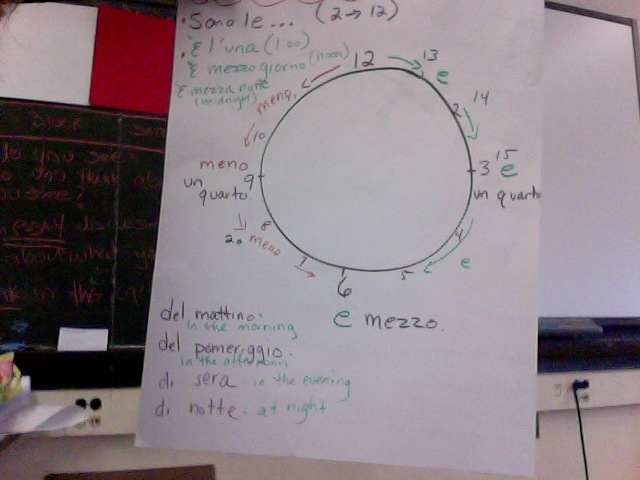 • Sono le... (2→12)
• È l'una (1:00)
È mezzogiorno (noon)
È mezza notte
(midnight)
12
13
e
meno
2
14
10
meno
un
quarto
9
3
15
e
un quarto
8
20
meno
7
4
e
5
6
e mezzo.
del mattino.
in the morning
del pomeriggio.
in the afternoon
di sera. in the evening
di notte. at night
do you see
about what
in this